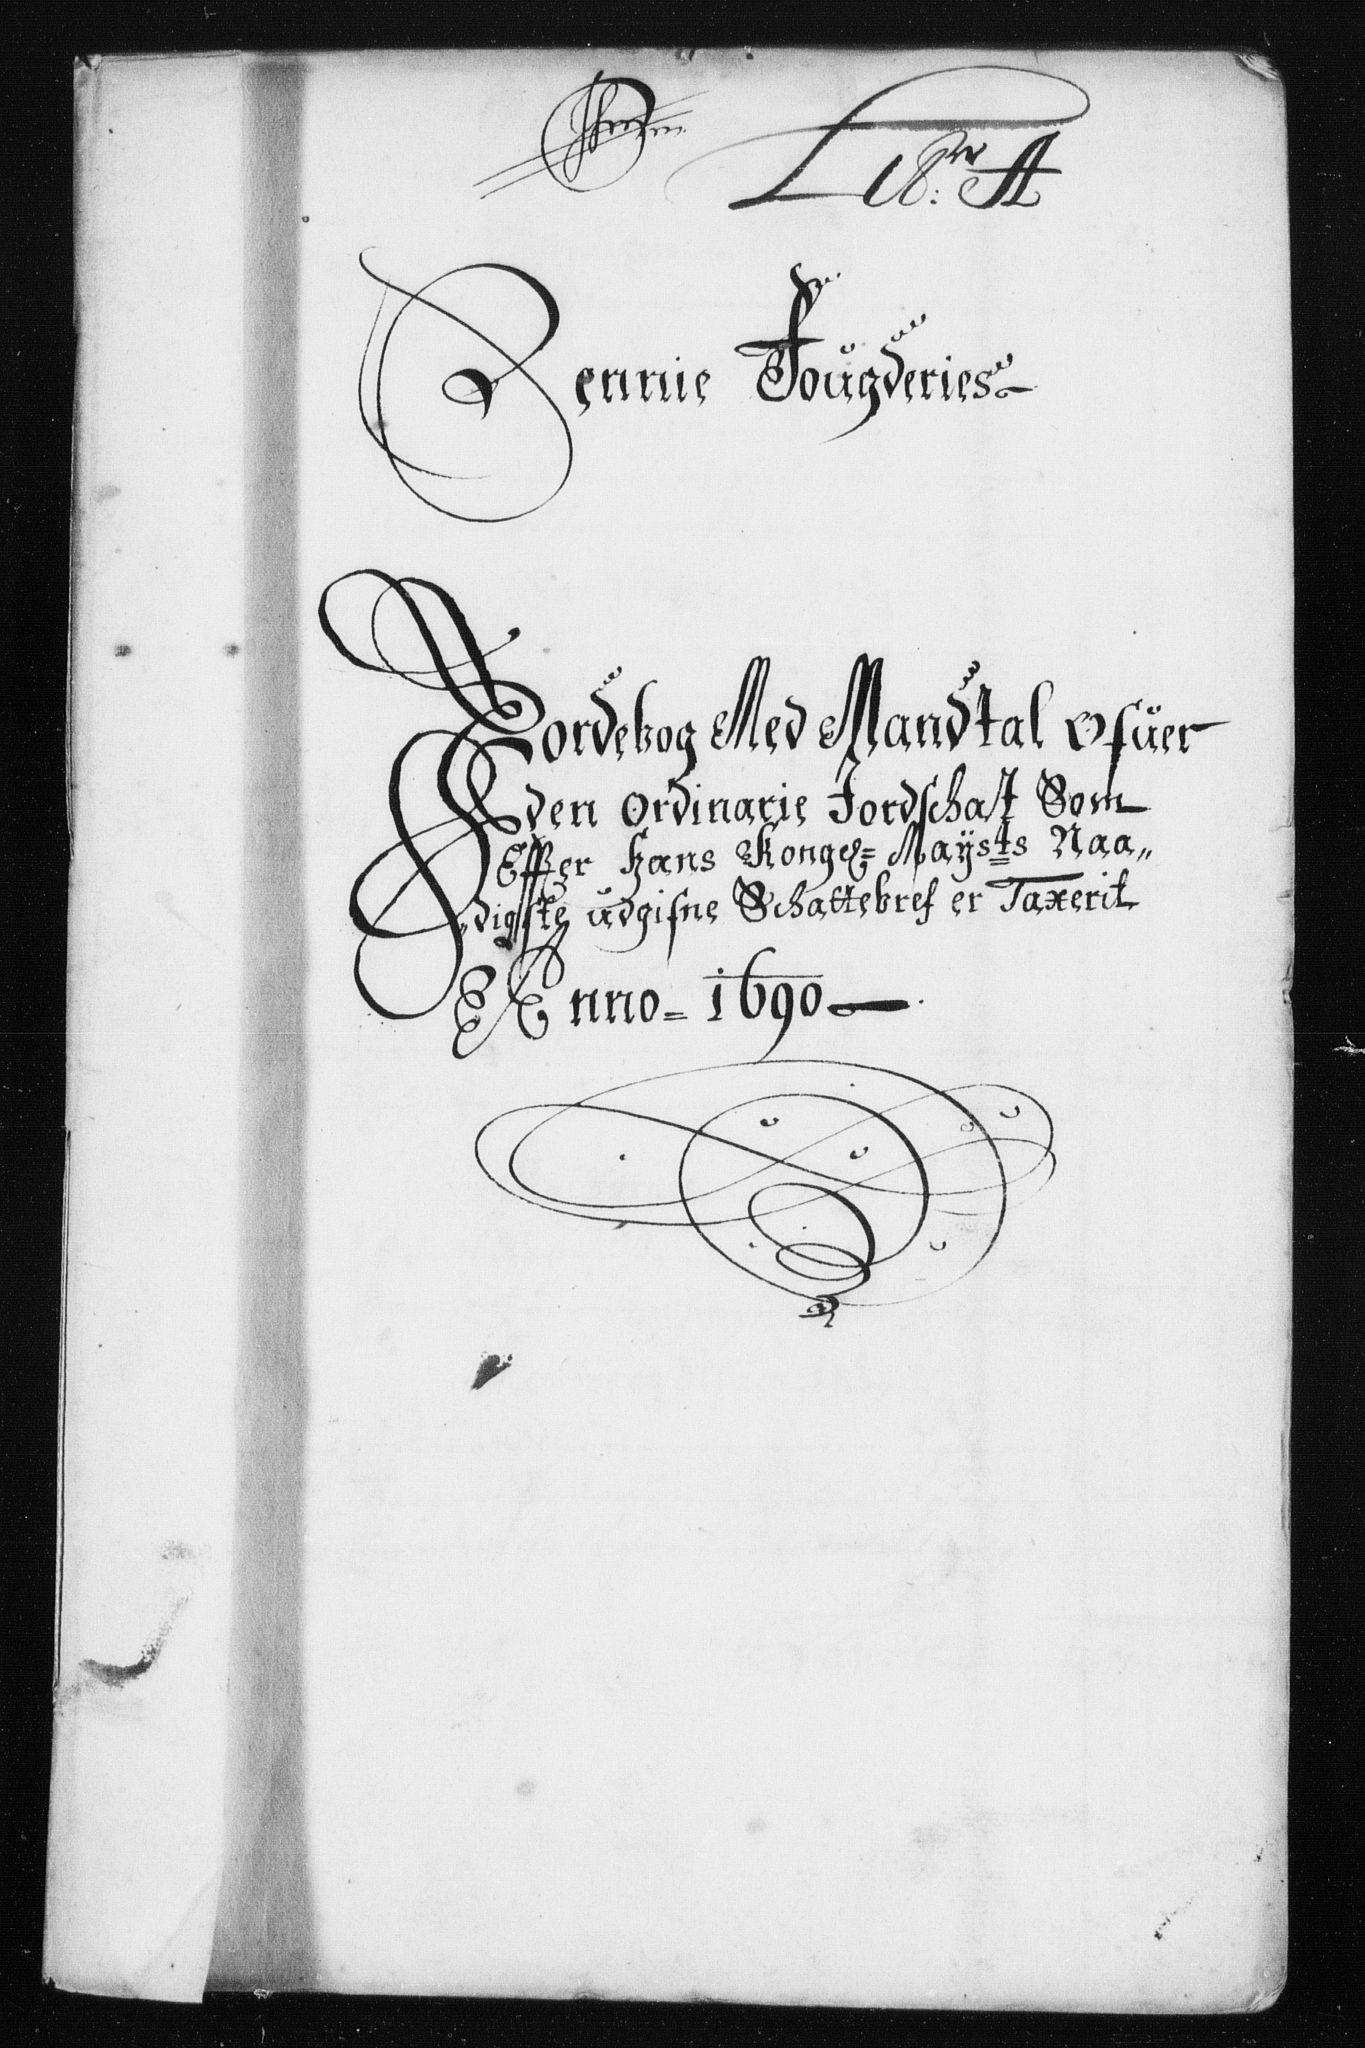 Litr: A
Rennie Fougderies
Jordebog Med Mandtal Ofuer
den Ordinarie Jordschat Som
Effter Hans Kongl= Mayets Naa„
digste udgifne Schattebref er Taxerit
Anno= 1690